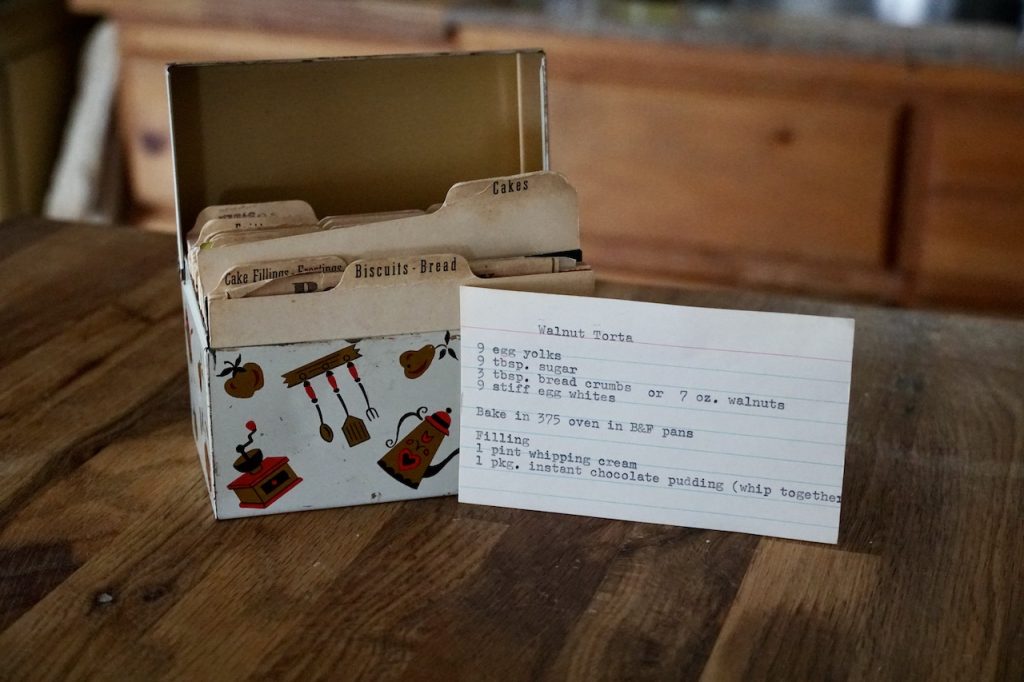 Cakes
Cake Fillings - Frostings
Biscuits - Bread
Walnut Torta
9 egg yolks
9 tbsp. sugar
3 tbsp. bread crumbs or 7 oz. walnuts
9 stiff egg whites
Bake in 375 oven in B&F pans
Filling
1 pint whipping cream
1 pkg. instant chocolate pudding (whip together